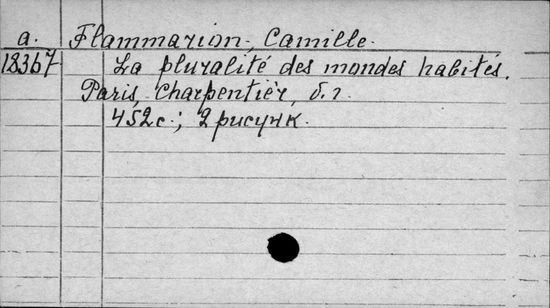 a. Flammarion, Camille.
18367 La pluralité des mondes habités.
Paris, Charpentièr, б.г.
452 с.; 2 рисунк.